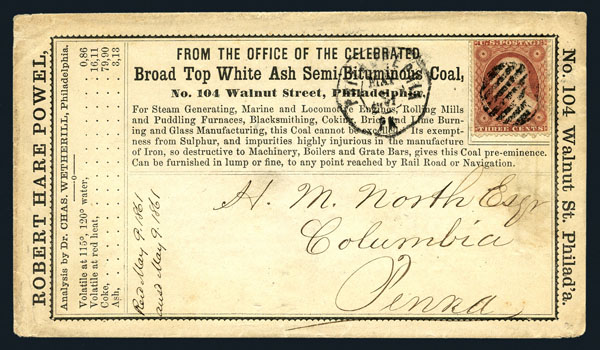 ROBERT HARE POWEL,
Analysis by Dr. CHAS. WETHERILL, Philadelphia.
—o—
Volatile at 115°, 120° water, . . 0,86
Volatile at red heat, . . . . 16,11
Coke, . . . . . . . 79,90
Ash, . . . . . . . 3,13
FROM THE OFFICE OF THE CELEBRATED
Broad Top White Ash Semi-Bituminous Coal,
No. 104 Walnut Street, Philadelphia.
For Steam Generating, Marine and Locomotive Engines, Rolling Mills
and Puddling Furnaces, Blacksmithing, Coking, Brick and Lime Burn-
ing and Glass Manufacturing, this Coal cannot be excelled. Its exempt-
ness from Sulphur, and impurities highly injurious in the manufacture
of Iron, so destructive to Machinery, Boilers and Grate Bars, gives this Coal pre-eminence.
Can be furnished in lump or fine, to any point reached by Rail Road or Navigation.
MAY
U.S. POSTAGE
THREE CENTS
No. 104 Walnut St. Philad'a.
H. M. North Esqr
Columbia
Penna
Recd May 9. 1861
ansd May 9. 1861